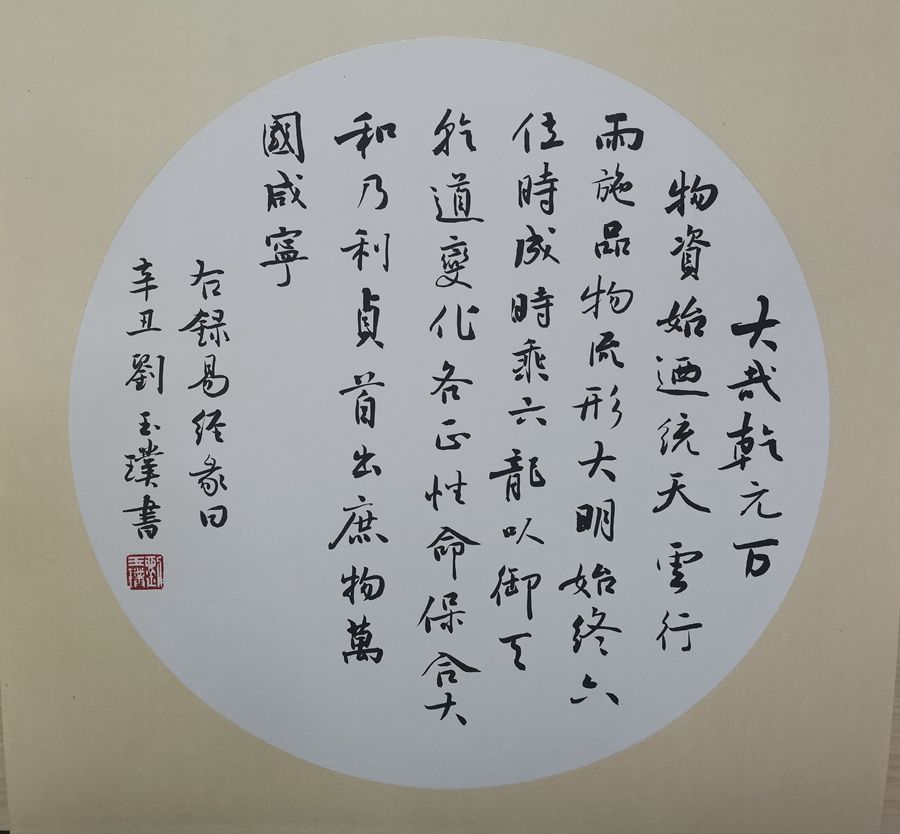 大哉乾元万
物資始迺統天雲行
雨施品物流形大明始終六
位時成時乘六龍以御天
乾道變化各正性命保合大
和乃利貞首出庶物萬
國咸寧
右録易经彖曰
辛丑劉玉璞書
劉玉璞